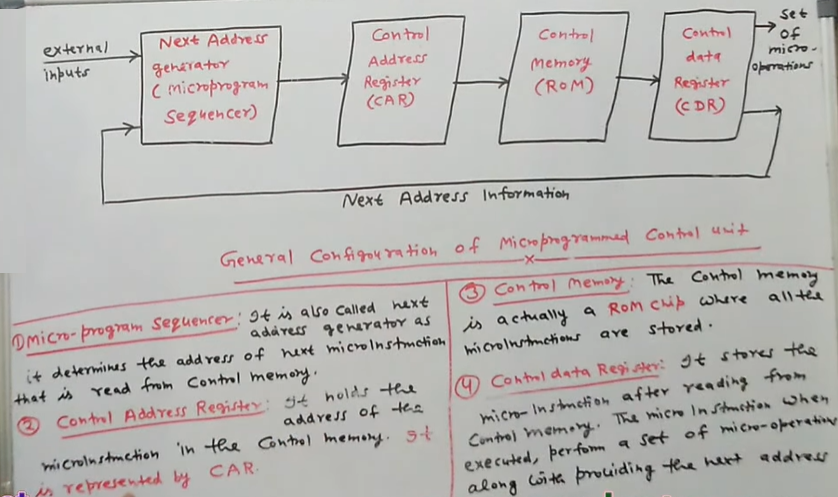 external
inputs
Next Address
generator
(microprogram
Sequencer)
Control
Address
Register
(CAR)
Control
Memory
(ROM)
Control
data
Register
(CDR)
set
of
micro-
operations
Next Address Information
General Configuration of Microprogrammed Control unit
x
① Micro-program Sequencer: It is also called next
address generator as
it determines the address of next microInstruction
that is read from Control memory.
② Control Address Register: It holds the
address of the
microInstruction in the Control memory. It
is represented by CAR.
③ Control Memory: The Control memory
is actually a ROM chip where all the
microInstructions are stored.
④ Control data Register: It stores the
micro-Instruction after reading from
Control memory. The micro Instruction when
executed, perform a set of micro-operation
along with providing the next address